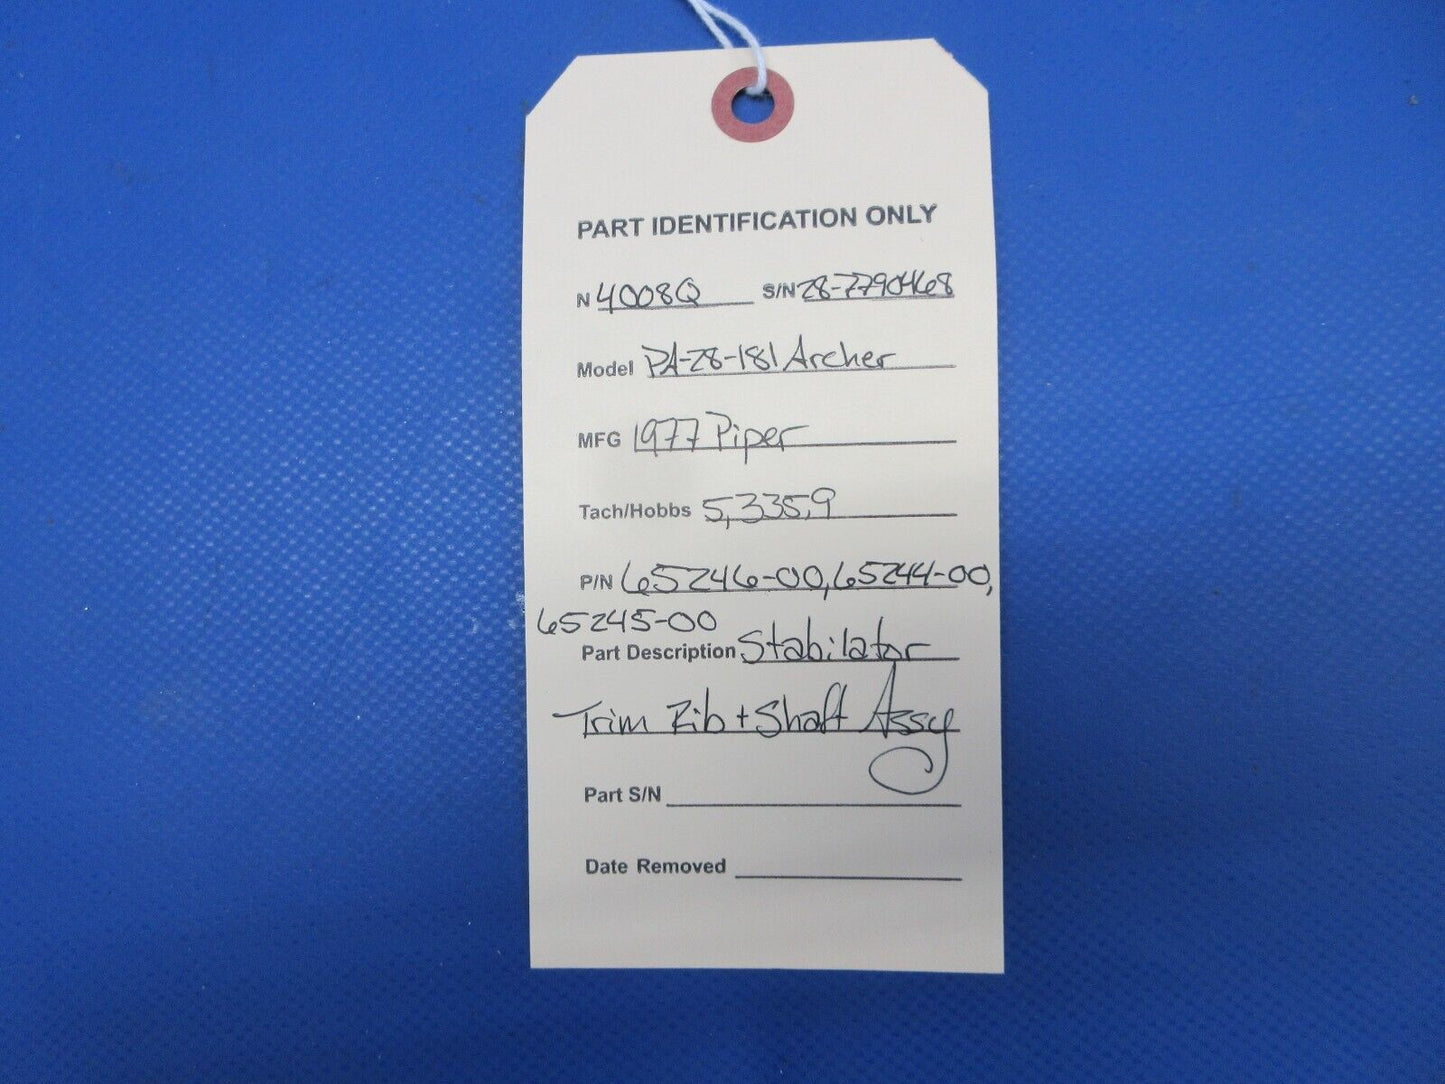 PART IDENTIFICATION ONLY
N 4008Q S/N 28-7790468
Model PA-28-181 Archer
MFG 1977 Piper
Tach/Hobbs 5,335.9
P/N 65246-00, 65244-00,
65245-00
Part Description Stabilator
Trim Rib + Shaft Assy
Part S/N
Date Removed